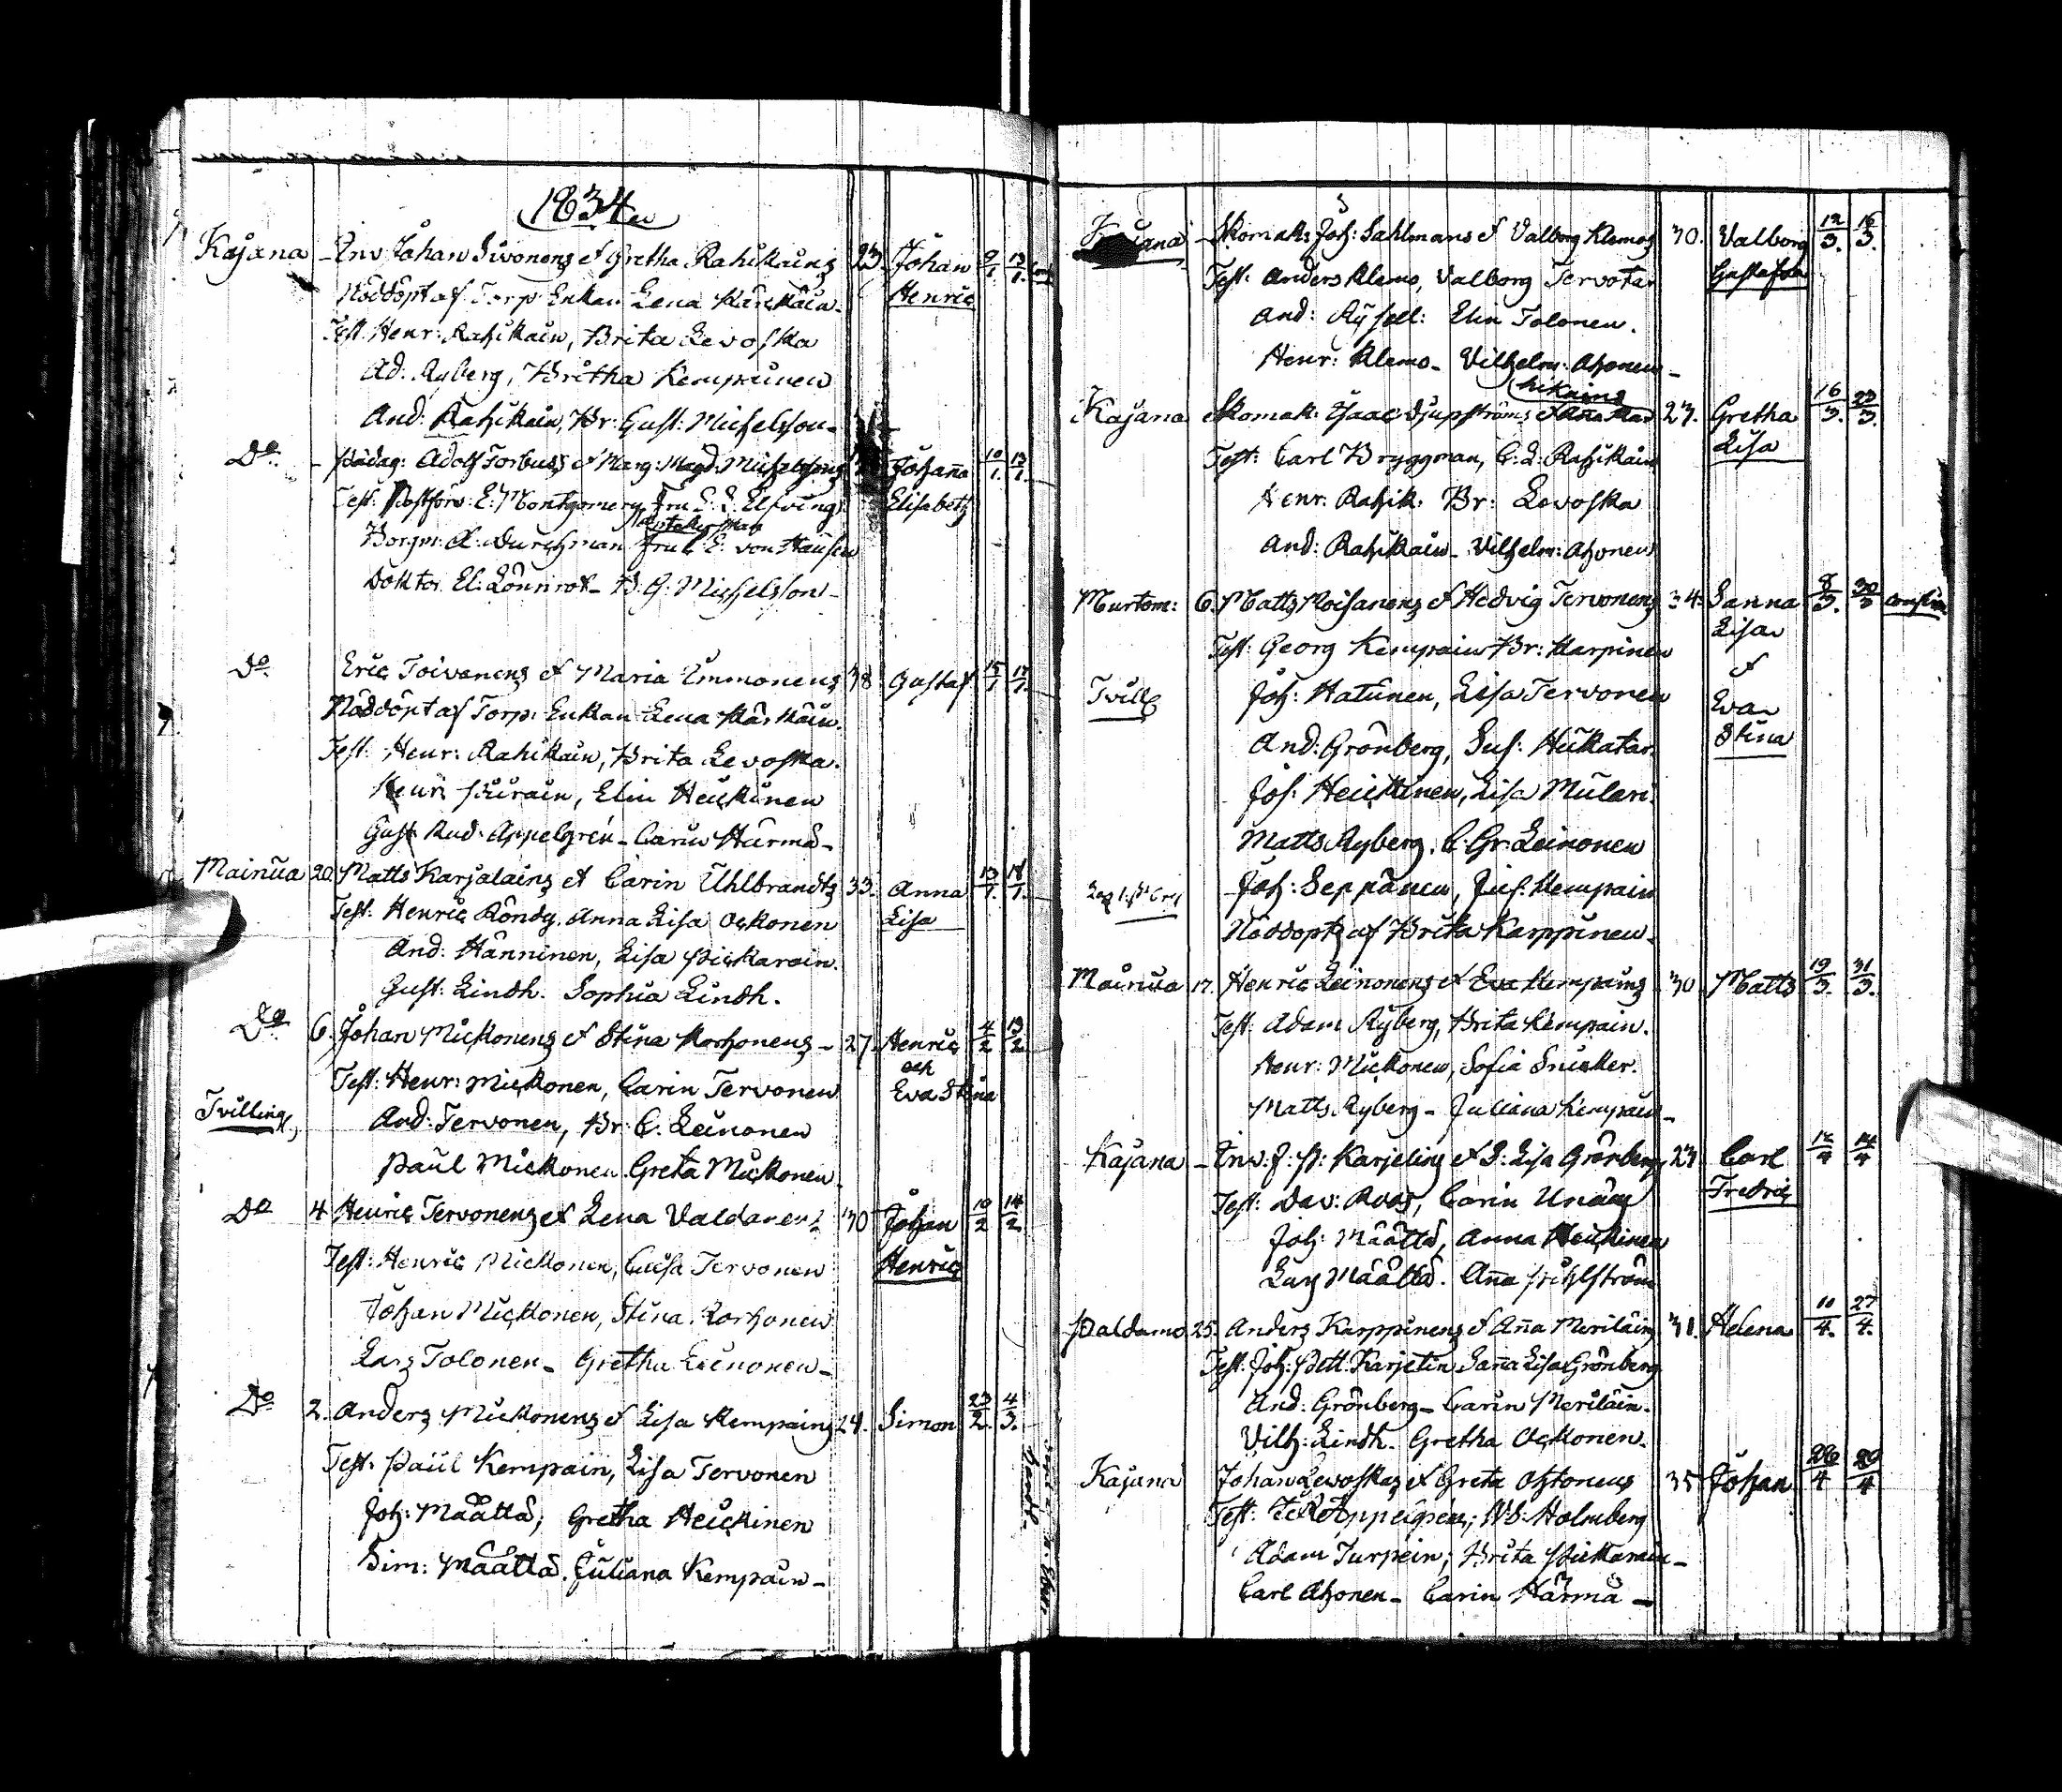 1834
Kajana - Inv Johan Sivonens et Gretha Rahikains 23 Johan 9/1 13/1
Nöddöpt af Torp: Enkan Lena Kärckäin. Henric
Test. Henr: Rahikain, Brita Levoska
Ad: Ryberg, Britha Kempainen
And: Rahikain, Br: Gust: Michelsson
Do - Pädag: Adolf Forbuss et Marg: Magd: Michelssons Johanna 10/1 13/1
Test. Postförv: E: Montgomery Fru E. E. Elfving Elisabeth
Borgm: A: Durchman Fru C: E. von Hausen
Doktor El: Lönnrot - B: G: Michelsson -
Do Eric Toivanens et Maria Immonens 38 Gustaf 15/1 17/1
Nöddöpt af Torp: Enkan Lena Kärckäin.
Test: Henr: Rahikain, Brita Levoska.
Henr: Piirain, Elin Heickinen
Gust Rud: Appelgrén - Carin Härmä -
Mainua 20. Matts Karjalains et Carin Uhlbrandts 33. Anna 13/1 18/1
Test: Henric Röndy. Anna Lisa Ockonen Lisa
And: Hänninen, Lisa Pickarain.
Gust: Lindh. Sophia Lindh.
Do 6. Johan Mickonens et Stina Korhonens - 27. Henric 4/2 13/2
och
Test: Henr: Mickonen, Carin Tervonen Eva Stina
Tvilling And: Tervonen, Br: C. Leinonen
Paul Mickonen. Greta Mickonen
Do 4 Henric Tervonens et Lena Valdanens 30 Johan 10/2 14/2
Test: Henric Mickonen, Caisa Tervonen Henric
Johan Mickonen, Stina Korhonen
Lars Tolonen - Gretha Leinonen -
Do 2. Anders Mickonens et Lisa Kempains 24. Simon 23/2 4/3.
Test: Paul Kempain, Lisa Tervonen
Joh: Määttä, Gretha Heickinen
Sim: Määttä. Juliana Kempain -
Kajana - Skomak: Joh: Sahlmans et Valborg Klemos 30. Valborg 12/3. 16/3.
Test: Anders Klemo, Valborg Tervotar Gustafva
And: Elin Tolonen.
Henr: Klemo - Vilhelm: Ahonen -
Kajana Skomak: Isaac Djupströms et Anna Rahikains 27. Gretha 16/3. 23/3
Test: Carl Bryggman, C: L: Rahikain Lisa
Henr: Rahik: Br: Levoska
And: Rahikain - Vilhelm: Ahonen
Murtom: 6. Matts Moisanens et Hedvig Tervonens 34. Sanna 8/3. 30/3
Test: Georg Kempain Br: Karpinen Lisa
Tvill Joh: Hatunen, Lisa Tervonen et Eva
And: Grönberg, Sus: Hukatar. Stina
Joh: Heickinen, Lisa Mulari
Matts Ryberg. C. Gr: Leinonen
Joh: Seppänen, Kempain
Nöddopt af Brita Karppinen.
Mainua 17. Henric Leinonens et Eva Kempains 30 Matts 19/3. 31/3.
Test: Adam Ryberg, Brita Kempain.
Henr: Mickonen, Sofia Snicker.
Matts Ryberg - Juliana Kempain -
Kajana - Inv: J: P: Karjelins et S: Lisa Grönbergs 27 Carl 12/4 14/4
Test: Dav: Roos, Carin Fredric
Joh: Määttä, Anna Heickinen
Lars Määttä. Anna Pihlström
Paldamo 25. Anders Karppinens et Anna Meriläins 31. Helena 11/4. 27/4.
Test: Joh: Pett. Karjelin Sanna Lisa Grönberg
And: Grönberg - Carin Meriläin.
Vilh: Lindh. Gretha Ockonen.
Kajana Johan Levoskas et Greta Ohtonens 35 Johan 26/4 29/4
Test: Appelgren; Holmberg
Adam Turpein; Brita Pickarain -
Carl Ahonen - Carin Härmä -